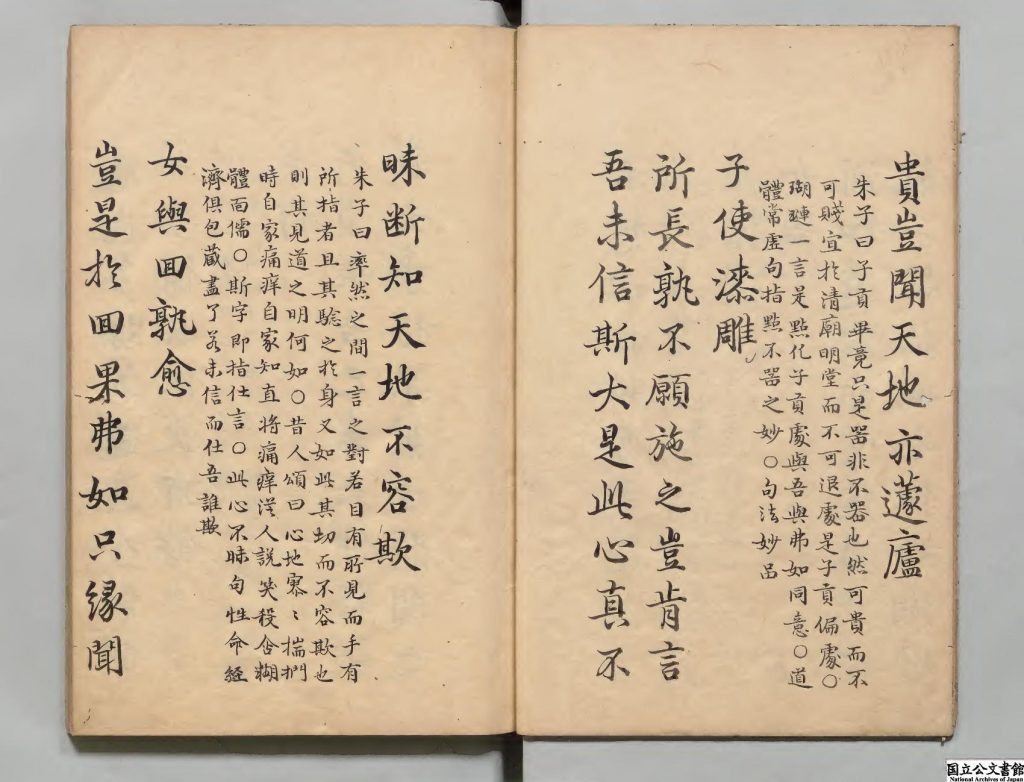 貴豈聞天地亦蘧廬
朱子曰子貢畢竟只是器非不器也然可貴而不
可賤宜於清廟明堂而不可退處是子貢偏處〇
瑚璉一言是點化子貢處與吾與弗如同意〇道
體常虛句指點不器之妙〇句法妙品
子使漆雕
所長孰不願施之豈肯言
吾未信斯大是此心真不
昧断知天地不容欺
朱子曰率然之間一言之對若目有所見而手有
所指者且其驗之於身又如此其切而不容欺也
則其見道之明何如〇昔人頌曰心地寥〻揣捫
時自家痛痒自家知直将痛痒従人説笑殺含糊
體面儒〇斯字即指仕言〇此心不昧句性命経
濟俱包蔵盡了若未信而仕吾誰欺
女與回孰愈
豈是於回果弗如只緣聞
国立公文書館
National Archives of Japan